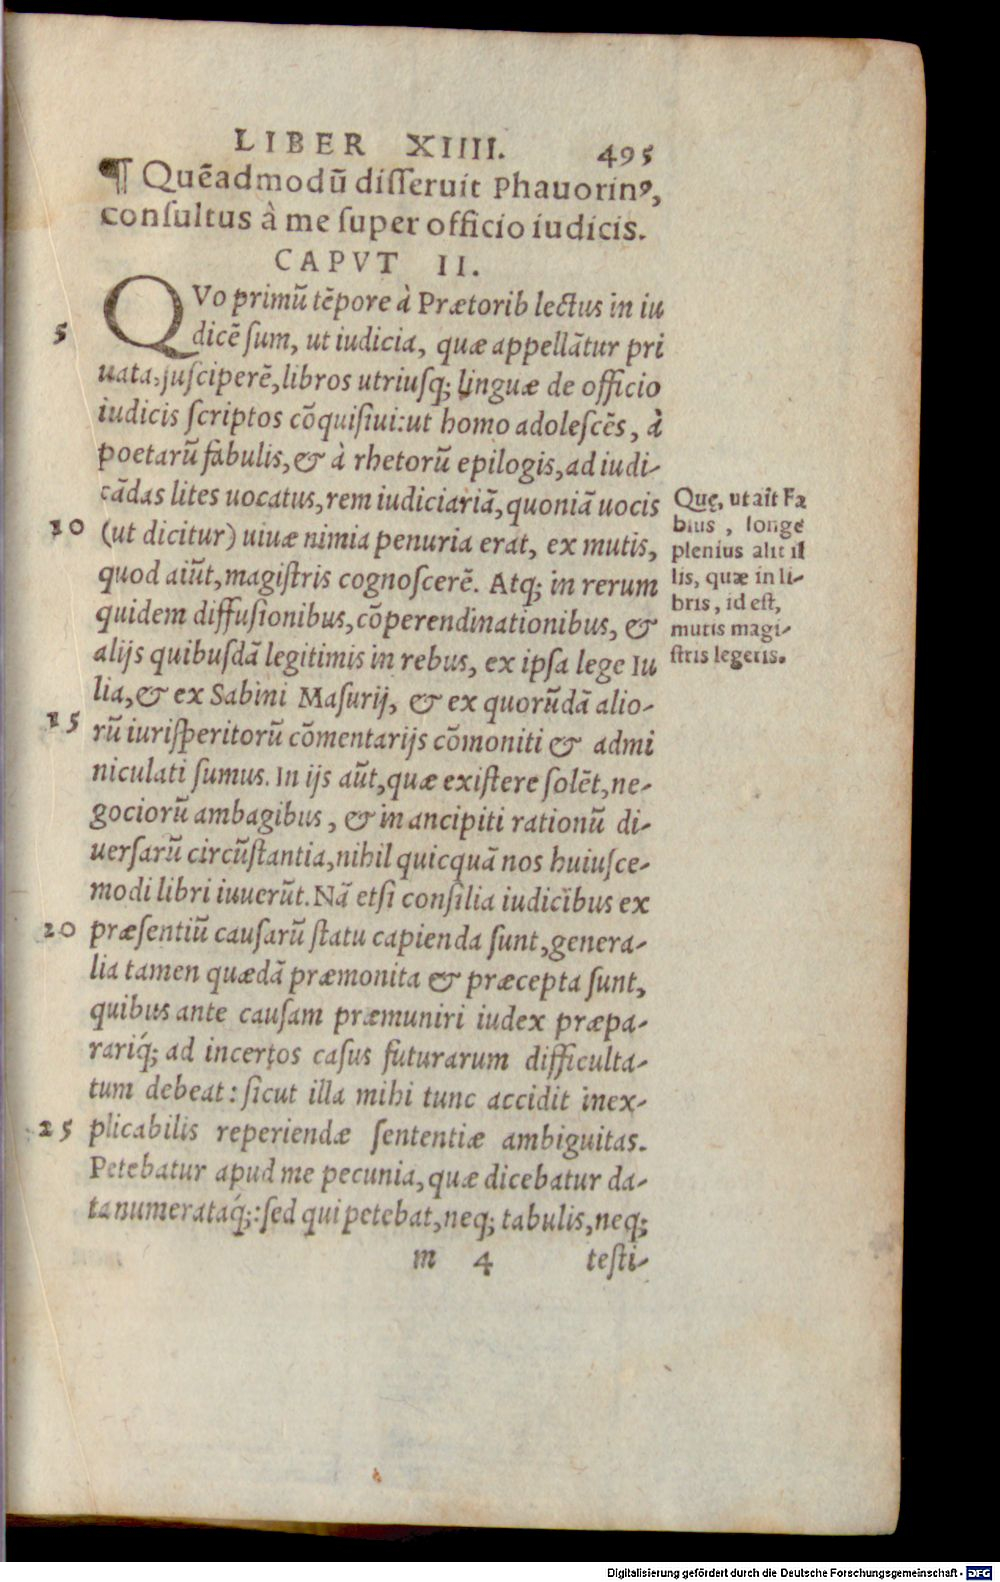 LIBER XIIII. 495
¶ Quẽadmodũ disseruit Phauorinꝰ,
consultus à me super officio iudicis.
CAPVT II.
QVo primũ tẽpore à Prætorib lectus in iu
5 dicẽ sum, ut iudicia, quæ appellãtur pri
uata, susciperẽ, libros utriusq; linguæ de officio
iudicis scriptos cõquisiui: ut homo adolescẽs, à
poetarũ fabulis, & à rhetorũ epilogis, ad iudi-
cãdas lites uocatus, rem iudiciariã, quoniã uocis
10 (ut dicitur) uiuæ nimia penuria erat, ex mutis,
quod aiũt, magistris cognoscerẽ. Atq; in rerum
quidem diffusionibus, cõperendinationibus, &
alijs quibusdã legitimis in rebus, ex ipsa lege Iu
lia, & ex Sabini Masurij, & ex quorũdã alio-
15 rũ iurisperitorũ cõmentarijs cõmoniti & admi
niculati sumus. In ijs aũt, quæ existere solẽt, ne-
gociorũ ambagibus, & in ancipiti rationũ di-
uersarũ circũstantia, nihil quicquã nos huiusce-
modi libri iuuerũt. Nã etsi consilia iudicibus ex
20 præsentiũ causarũ statu capienda sunt, genera-
lia tamen quædã præmonita & præcepta sunt,
quibus ante causam præmuniri iudex præpa-
rariq́; ad incertos casus futurarum difficulta-
tum debeat: sicut illa mihi tunc accidit inex-
25 plicabilis reperiendæ sententiæ ambiguitas.
Petebatur apud me pecunia, quæ dicebatur da-
ta numerataq́;: sed qui petebat, neq; tabulis, neq;
m 4 testi-
Quę, ut ait Fa
bius, longe
plenius alit il
lis, quæ in li-
bris, id est,
mutis magi-
stris legeris.
Digitalisierung gefördert durch die Deutsche Forschungsgemeinschaft - DFG